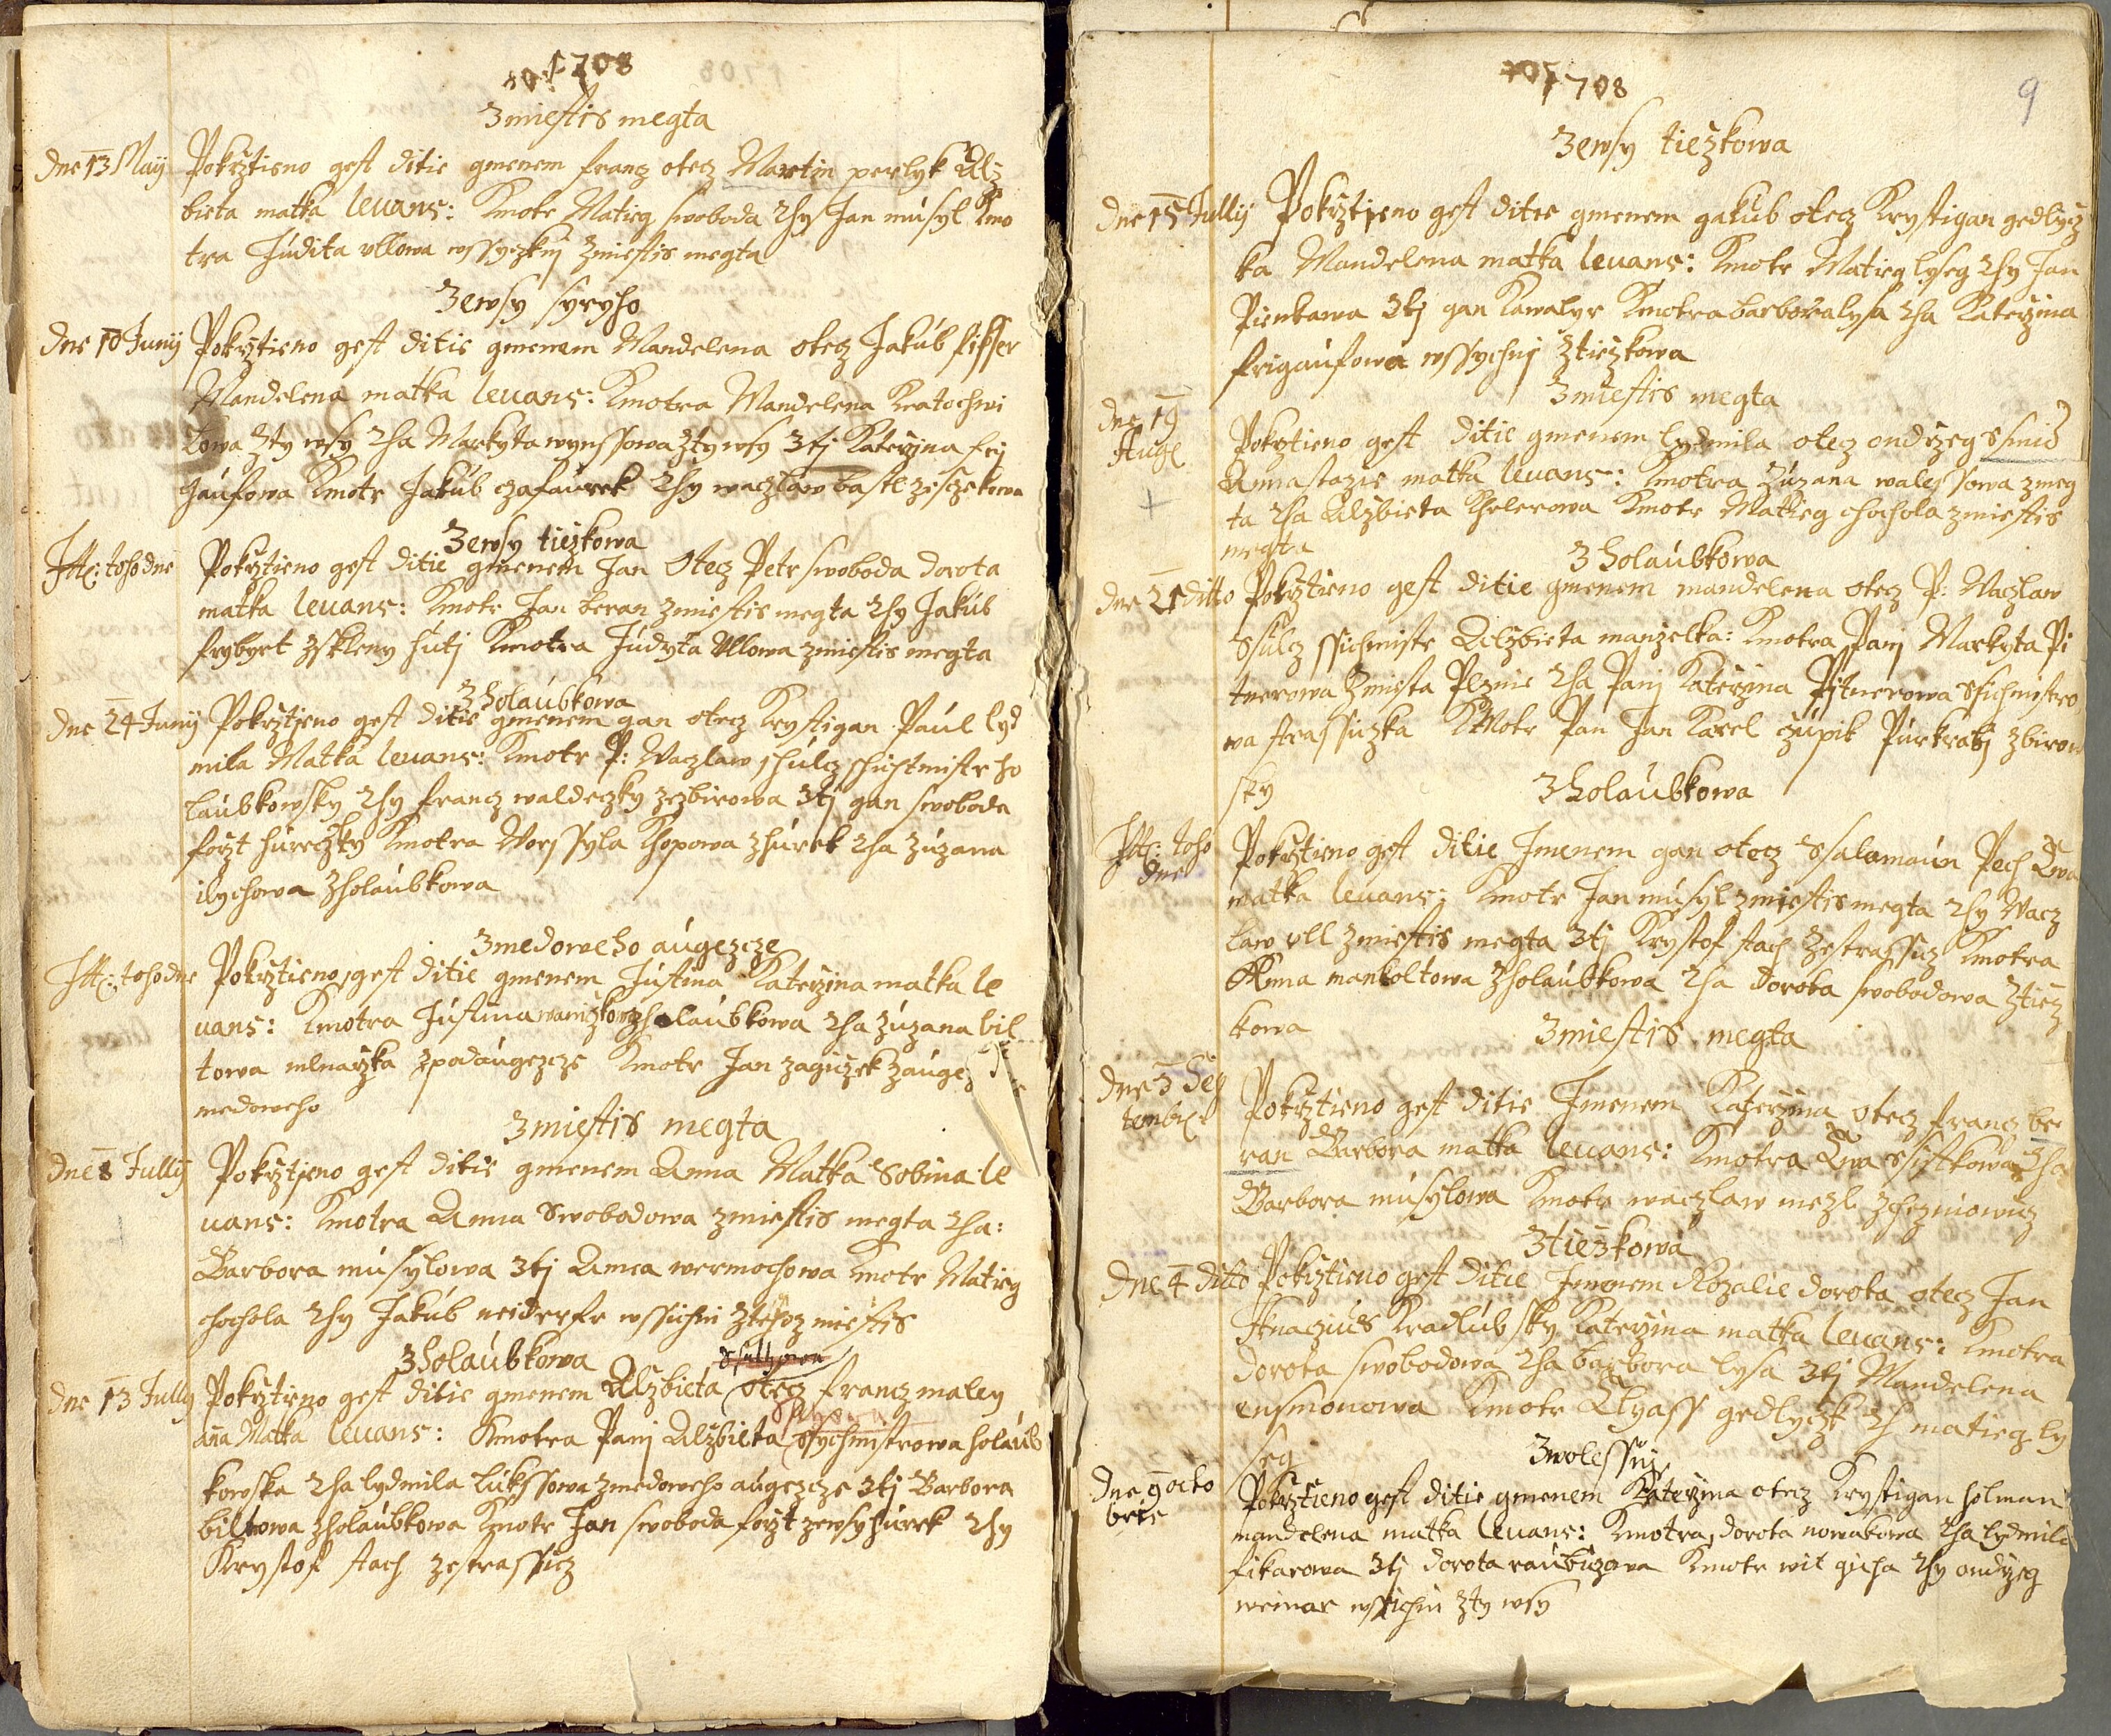 1708
Zmiestis megta
dne 13 May Pokrztieno gest ditie gmenem francz otecz Martin perlyk Alz
bieta matka levans: Kmotr Matieg swoboda 2hy Jan músyl Kmo
tra Júdita ullowa wssyczknj zmiestis megta
Zewsy syryho
dne 10 Juny Pokrztieno gest ditie gmenem Mandelena otecz Jakúb fisser
Mandelena matka levans: Kmotra Mandelena Kratochwi
lowa zty wsy 2ha Markyta wynssowa zty wsy 3tj Katerzina frj
gaúfowa Kmotr Jakúb czafaúrek 2hy waczlaw bastl
Zewsy tiezkowa
Itt: toho dne Pokrztieno gest ditie gmenem Jan Otecz Petr swoboda dorota
matka levans: Kmotr Jan beran zmiestis megta 2hy Jakúb
frybert zskleny hútj Kmotra Júdyta Ullowa zmiestis megta
Zholaúbkowa
dne 24 Juny Pokrztieno gest ditie gmenem gan otecz Krystigan Paúl lyd
mila Matka levans: Kmotr P: Waczlaw shúlcz shichtmistr ho
laúbkowsky 2hy francz waldeczky zezbirowa 3tj gan swoboda
forzt húreczky Kmotra Worssyla Khopowa zhúrek 2ha zúzana
ilychowa zholaúbkowa
Zmedoweho aúgezcze
Itt: toho dne Pokrztieno gest ditie gmenem Jústina Katerzina matka le
vans: Kmotra Jústina zholaúbkowa 2ha zúzana bil
towa mlnarzka zpodaúgezcze Kmotr Jan zagiczek
medoweho
Zmiestis megta
dne 8 Jullij Pokrztieno gest ditie gmenem Anna Matka Sobina le
vans: Kmotra Anna Swobodowa zmiestis megta 2ha:
Barbora músylowa 3tj Anna wermochowa Kmotr Matieg
chochola 2hy Jakúb neiderfr wssichni ztehoz miestis
Zholaúbkowa
dne 13 Jully Pokrztieno gest ditie gmenem Alzbieta otecz francz maley
ana Matka levans: Kmotra Panj Alzbieta ssychmistrowa holaúb
kowska 2ha lydmila lúkssowa zmedoweho aúgezcze 3tj Barbora
biltowa zholaúbkowa Kmotr Jan swoboda forzt zewsy húrek 2hy
Krystof stach zestrassicz
1708
9
Zewsy tiezkowa
dne 15 Jullij Pokrztieno gest ditie gmenem gakúb otecz Krystigan gedlycz
ka Mandelena matka levans: Kmotr Matieg lyseg 2hy Jan
Pienkawa 3tj gan Kawalyr Kmotra barbora lysa 2ha Katerzina
frigaúfowa wssychnj ztiezkowa
Zmiestis megta
dne 19
Aug: Pokrztieno gest ditie gmenem lydmila otecz ondrzeg ssmid
Annastazie matka levans: Kmotra Zúzana walessowa zmeg
ta 2ha Alzbieta Khelerowa Kmotr Matieg chochola zmiestis
megta
Zholaúbkowa
dne 21 ditto Pokrztieno gest ditie gmenem mandelena otecz P: Waczlaw
Ssúlcz ssichmistr Alzbieta manzelka: Kmotra Panj Markyta Pi
tnerowa zmiesta Plznie 2ha Panj Katerzina Pytnerowa ssichmistro
wa strassiczka Kmotr Pan Jan Karel czúpik Púrkrabj zbirow
sky
Zholaúbkowa
Itt: toho
dne Pokrztieno gest ditie Jmenem gan otecz Ssalamaún Pech Ewa
matka levans: Kmotr Jan músyl zmiestis megta 2hy Wacz
law ull zmiestis megta 3tj Krystof stach zestrassicz Kmotra
Anna mankoltowa zholaúbkowa 2ha dorota swobodowa ztiez
kowa
Zmiestis megta
dne 3 Sep
temb: Pokrztieno gest ditie Jmenem Katerzina otecz francz be
ran Barbora matka levans: Kmotra Ewa ssistkowa 2ha
Barbora músylowa Kmotr waczlaw mezl
Ztiezkowa
dne 4 ditto Pokrztieno gest ditie Jmenem Rozalie dorota otecz Jan
Iknaczius Kradlúbsky Katerzina matka levans: Kmotra
dorota swobodowa 2ha barbora lysa 3tj Mandelena
ensmonowa Kmotr Elyass gedlyczk 2h matieg ly
seg
Zwolessnj
dne 9 octo
bris Pokrztieno gest ditie gmenem Katerzina otecz Krystigan holman
mandelena matka levans: Kmotra dorota nowakowa 2ha lydmila
fikarowa 3tj dorota raúbiczowa Kmotr wit gicha 2hy ondrzeg
weinar wssichni zty wsy